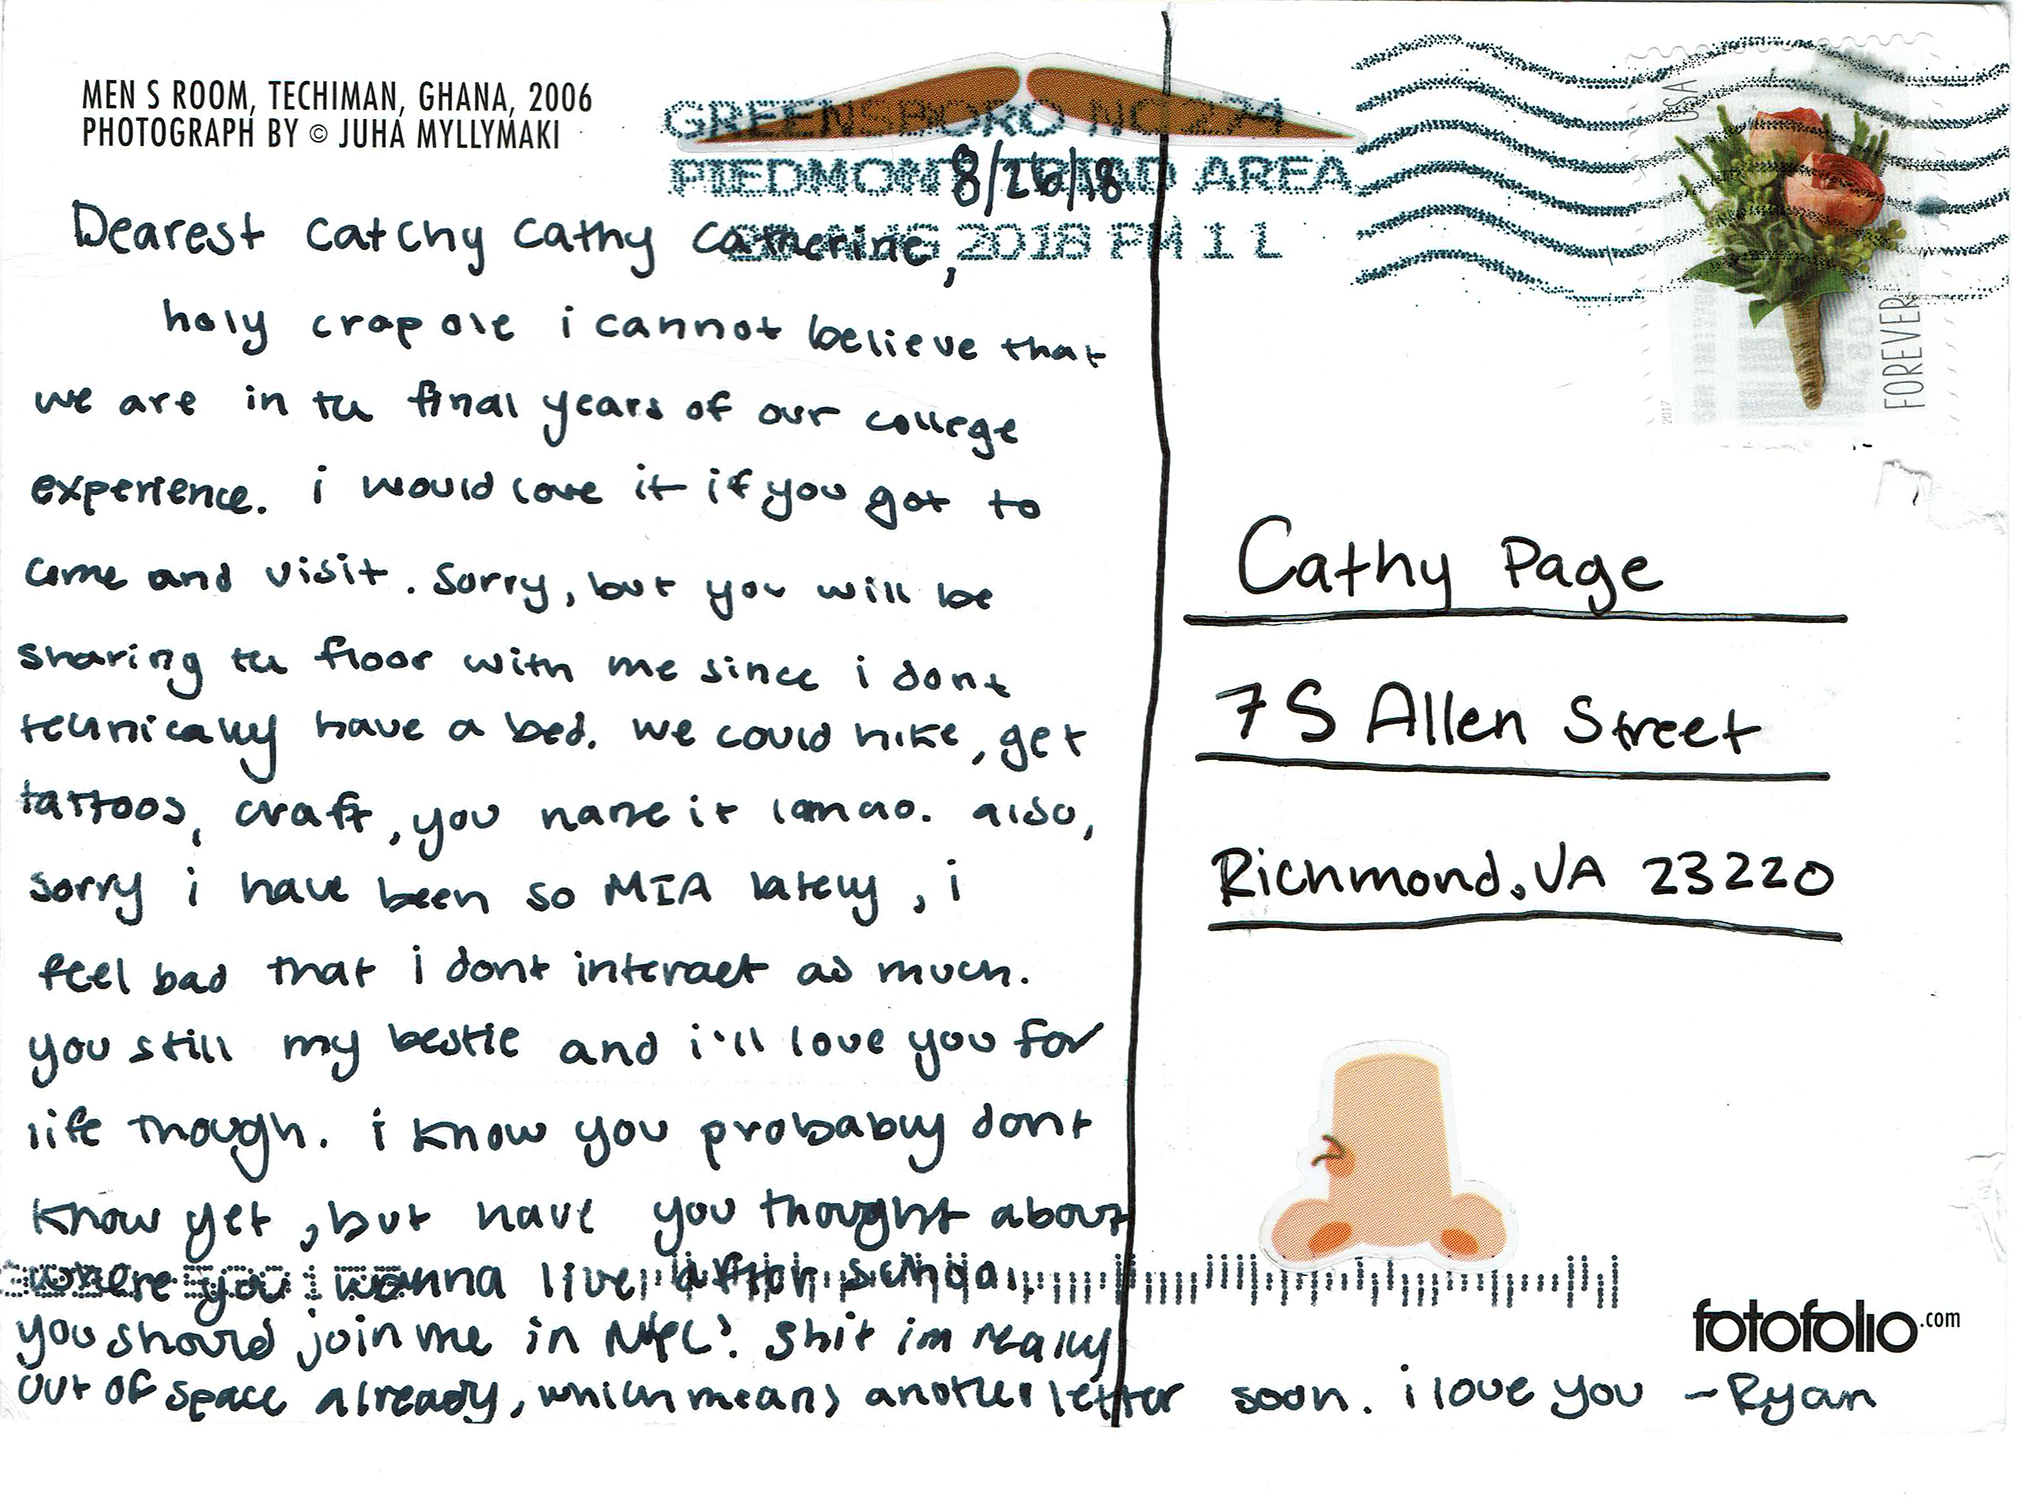 MEN S ROOM, TECHIMAN, GHANA, 2006
PHOTOGRAPH BY © JUHA MYLLYMAKI
GREENSBORO NC 274
PIEDMONT TRIAD AREA
AUG 2018 PM 1 L
8/26/18
USA
FOREVER
2017
Dearest Catchy Cathy Catherine,
holy crap ole i cannot believe that
we are in the final years of our college
experience. i would love it if you got to
come and visit. Sorry, but you will be
sharing the floor with me since i dont
technically have a bed. we could hike, get
tattoos, craft, you name it lmao. also,
sorry i have been so MIA lately, i
feel bad that i dont interact as much.
you still my bestie and i'll love you for
life though. i know you probably dont
know yet, but have you thought about
where you wanna live after school.
you should join me in Shit im really
out of space already, which means another letter soon. i love you -Ryan
Cathy Page
7 S Allen Street
Richmond, VA 23220
fotofolio.com